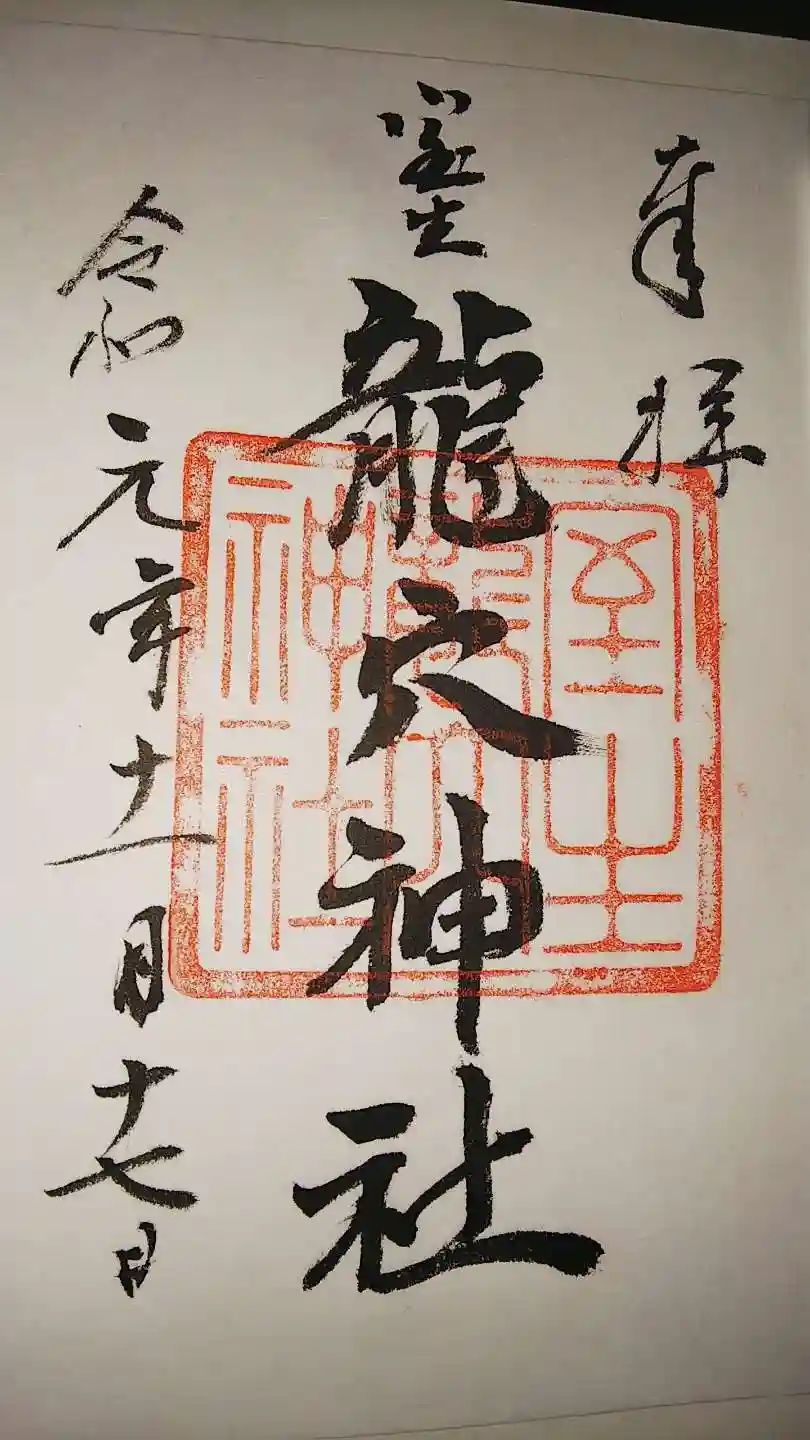 奉拝
室生龍穴神社
令和元年十一月十七日
室生龍穴神社